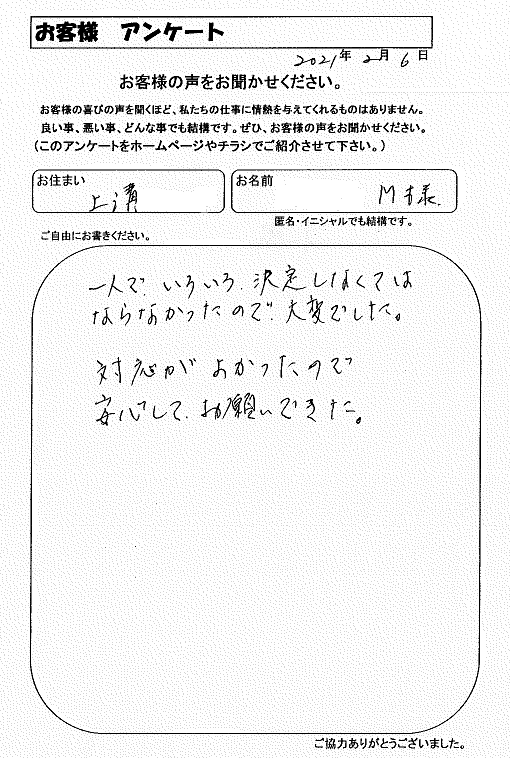 お客様 アンケート
2021年 2月 6日
お客様の声をお聞かせください。
お客様の喜びの声を聞くほど、私たちの仕事に情熱を与えてくれるものはありません。
良い事、悪い事、どんな事でも結構です。ぜひ、お客様の声をお聞かせください。
（このアンケートをホームページやチラシでご紹介させて下さい。）
お住まい
上溝
お名前
M様
匿名・イニシャルでも結構です。
ご自由にお書きください。
一人で、いろいろ、決定しなくては
ならなかったので、大変でした。
対応が よかったので
安心して、お願いできた。
ご協力ありがとうございました。